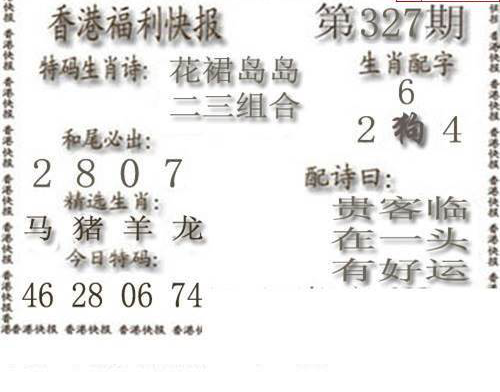 香港福利快报
第327期
特码生肖诗:
花裙岛岛
二三组合
生肖配字
6
2 狗 4
和尾必出:
2 8 0 7
精选生肖:
马 猪 羊 龙
今日特码:
46 28 06 74
配诗曰:
贵客临
在一头
有好运
香港快报 香港快报 香港快报 香港快报